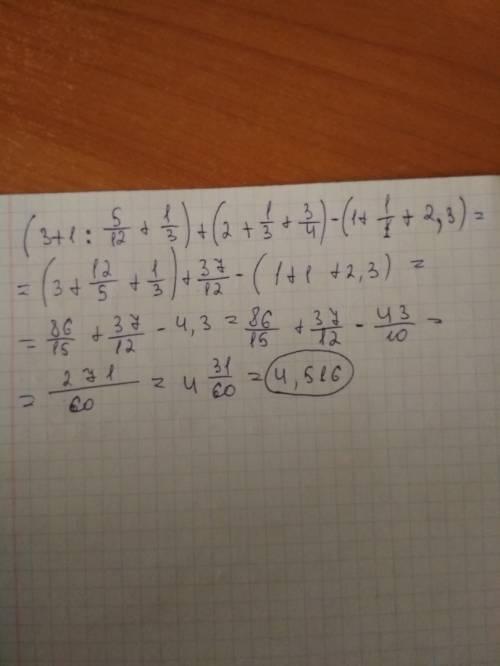 (3+1 : 5/12 + 1/3) + (2 + 1/3 + 3/4) - (1 + 1/1 + 2,3) =
= (3 + 12/5 + 1/3) + 37/12 - (1 + 1 + 2,3) =
= 86/15 + 37/12 - 4,3 = 86/15 + 37/12 - 43/10 =
= 271/60 = 4 31/60 = 4,516